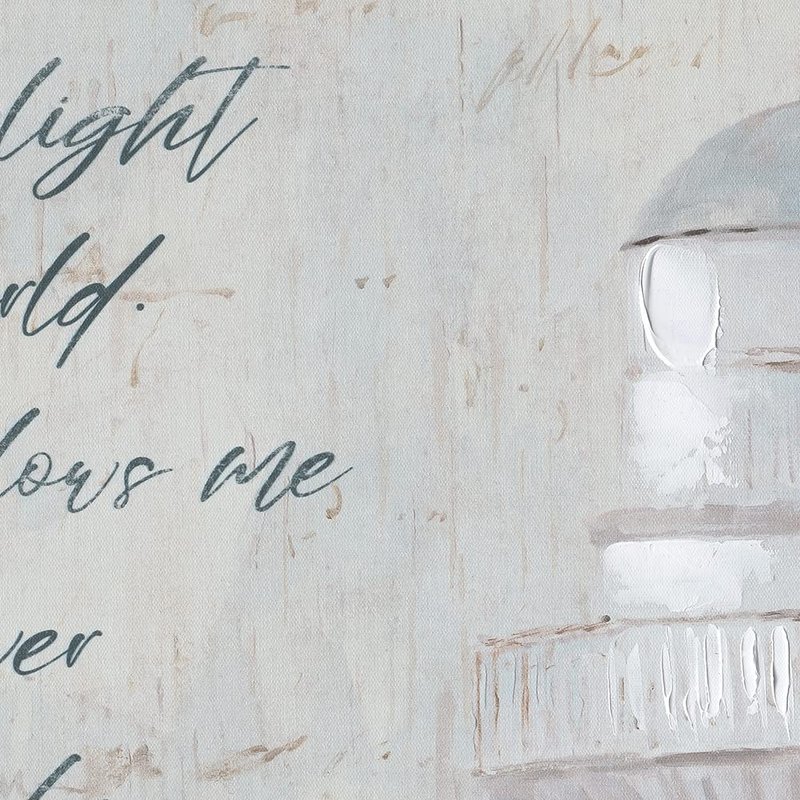 light
rld.
lows me
ver